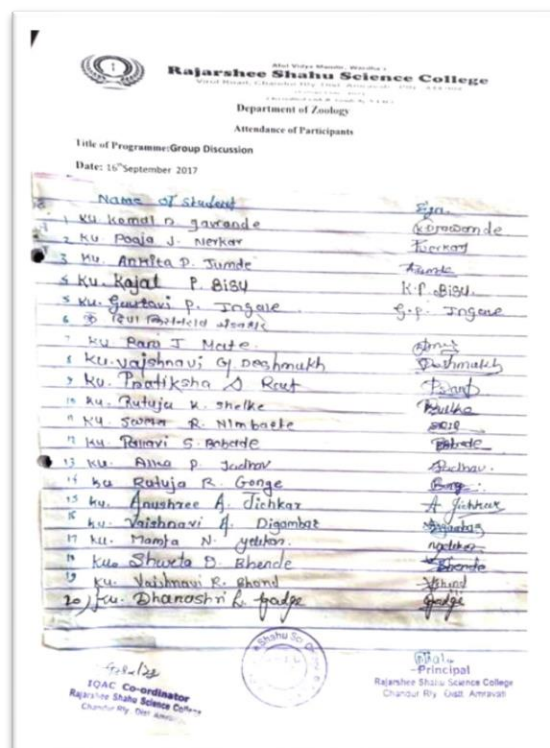 Rajarshee Shahu Science College
Department of Zoology
Attendance of Participants
Title of Programme:Group Discussion
Date: 16th September 2017
Name of student Sgn.
1 Ku. Komal D. gawande
2 Ku Pooja J. Nerkar
3 Ku. Ankita P. Jumde Jumde
4 Ku. Kajal P. Bisu K.P. Bisu
5 Ku. P. Ingale G.P. Ingale
6 कु
7 Ku. J Mate
8 Ku. Vaishnavi G Deshmukh Deshmukh
9 Ku. Pratiksha S Raut
10 Ku. Rutuja K. Shelke Shelke
11 Ku. R. Nimbarte
12 Ku. Pallavi S. Bobade Bobade
13 Ku. P. Jadhav Jadhav.
14 Ku Rutuja R. Gonge
15 Ku. Anushree A. Jichkar A Jichkar
16 Ku. Vaishnavi A. Digambar
17 Ku. Mamta N.
18 Ku. Shweta D. Bhende Bhende
19 Ku. Vaishnavi R. Bhond
20) Ku. Dhanashri L. Gadge Gadge
IQAC Co-ordinator
Rajarshee Shahu Science College
Chandur Rly Dist Amravati
Principal
Rajarshee Shahu Science College
Chandur Rly. Distt. Amravati